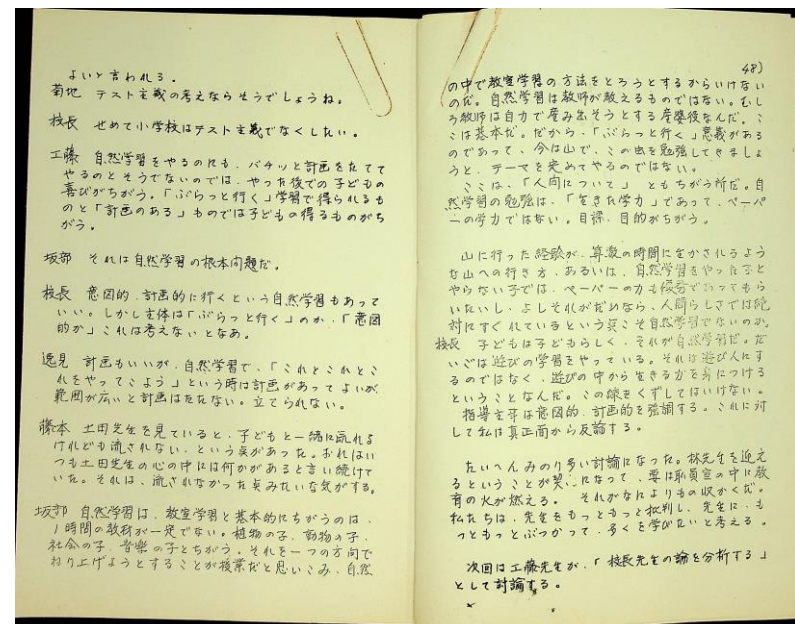 よいと言われる。
菊地 テスト主義の考えならそうでしょうね。
校長 せめて小学校はテスト主義でなくしたい。
工藤 自然学習をやるのにも、バチッと計画をたてて
やるのとそうでないのでは、やった後での子どもの
喜びがちがう。「ぶらっと行く」学習で得られるも
のと「計画のある」ものでは子どもの得るものがち
がう。
坂部 それは自然学習の根本問題だ。
校長 意図的、計画的に行くという自然学習もあって
いい。しかし主体は「ぶらっと行く」のか、「意図
的か」これは考えないとなあ。
逸見 計画もいいが、自然学習で、「これとこれとこ
れをやってこよう」という時は計画があってよいが、
範囲が広いと計画はたたない。立てられない。
藤本 土田先生を見ていると、子どもと一緒に流れる
けれども流されない、という点があった。おれはい
つも土田先生の心の中には何かがあると言い続けて
いた。それは、流されなかった点みたいな気がする。
坂部 自然学習は、教室学習と基本的にちがうのは、
1時間の教材が一定でない。植物の子、動物の子、
社会の子、音楽の子とちがう。それを一つの方向で
ねり上げようとすることが授業だと思いこみ、自然
48)
の中で教室学習の方法をとろうとするからいけない
のだ。自然学習は教師が教えるものではない。むし
ろ教師は自力で産み出そうとする産婆役なんだ。こ
こは基本だ。だから、「ぶらっと行く」意義がある
のであって、今は山で、この虫を勉強してきましょ
うと、テーマを定めてやるのではない。
ここは、「人間について」ともちがう所だ。自
然学習の勉強は、「生きた学力」であって、ペーパ
ーの学力ではない。目標、目的がちがう。
山に行った経験が、算数の時間に生かされるよう
な山への行き方、あるいは、自然学習をやった子と
やらない子では、ペーパーの力も優秀であってもら
いたいし、よしそれがだめなら、人間らしさでは絶
対にすぐれているという点こそ自然学習でないのか。
校長 子どもは子どもらしく、それが自然学習だ。だ
いごは遊びの学習をやっている。それは遊び人にす
るのではなく、遊びの中から生きる力を身につける
ということなんだ。この線をくずしてはいけない。
指導主事は意図的、計画的を強調する。これに対
して私は真正面から反論する。
たいへんみのり多い討論になった。林先生を迎え
るということが契になって、要は職員室の中に教
育の火が燃える。それがなによりもの収かくだ。
私たちは、先生をもっともっと批判し、先生に、も
っともっとぶつかって、多くを学びたいと考える。
次回は工藤先生が、「校長先生の論を分析する」
として討論する。